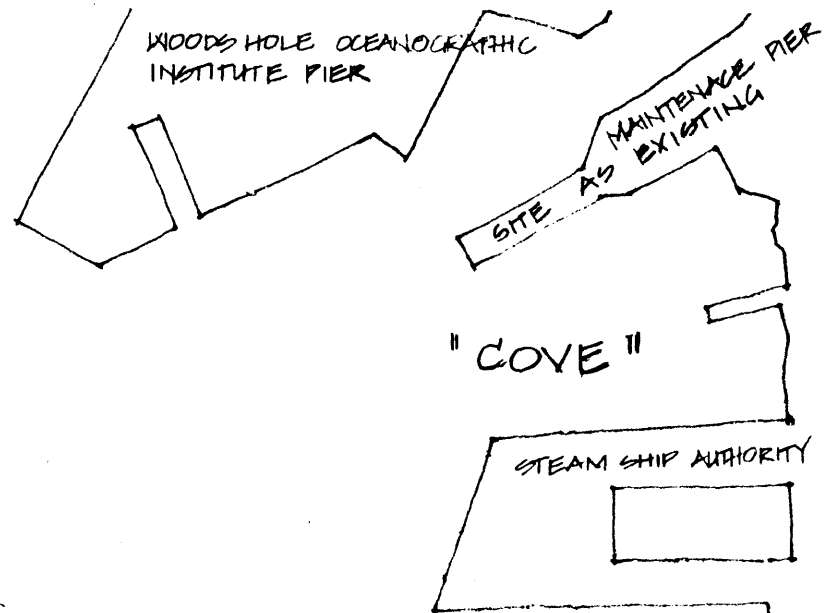 WOODS HOLE OCEANOGRAPHIC
INSTITUTE PIER
MAINTENACE PIER
SITE AS EXISTING
"COVE"
STEAM SHIP AUTHORITY